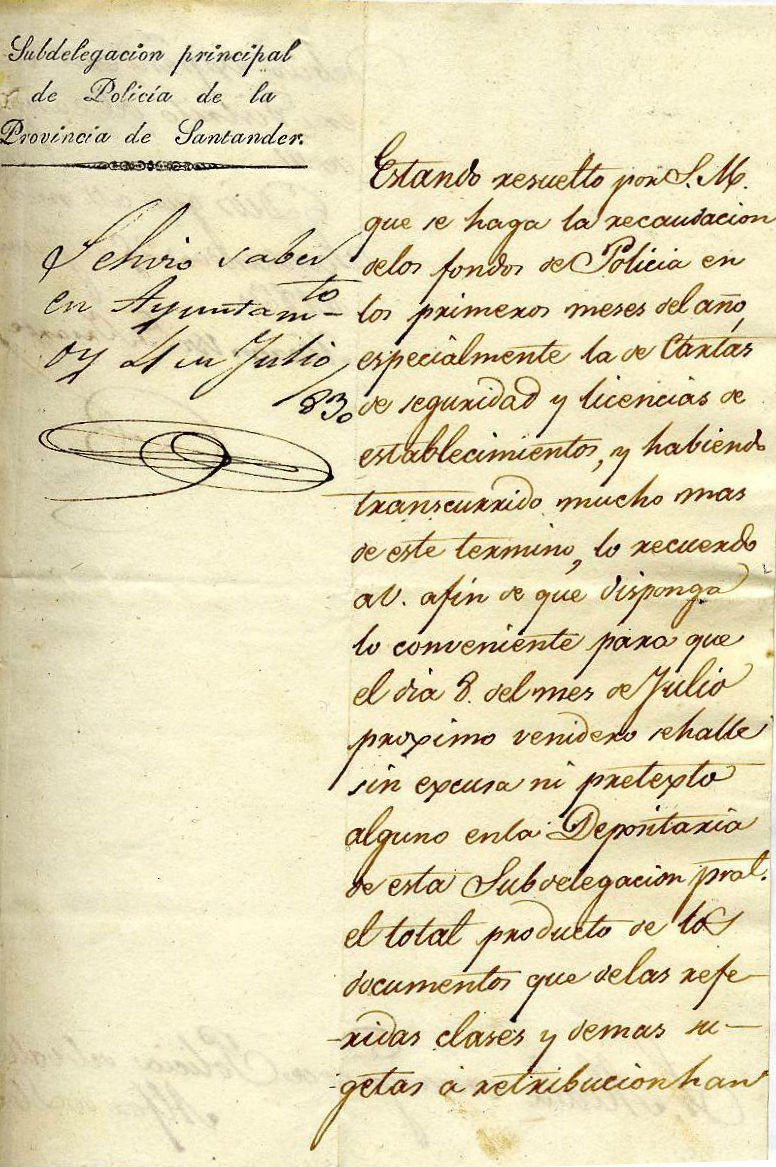 Subdelegacion principal
de Policía de la
Provincia de Santander.
Se hizo saber
en Ayuntam.to
oy 4 de Julio
1830
Estando resuelto por S. M.
que se haga la recaudacion
delos fondos de Policia en
los primeros meses del año,
especialmente la de Cartas
de seguridad y licencias de
establecimientos, y habiendo
transcurrido mucho mas
de este termino, lo recuerdo
a V. afin de que disponga
lo conveniente para que
el dia 8. del mes de Julio
proximo venidero se halle
sin excusa ni pretexto
alguno enla Depositaria
de esta Subdelegacion pral.
el total producto de los
documentos que delas refe-
ridas clases y demas su-
getas á retribucion han